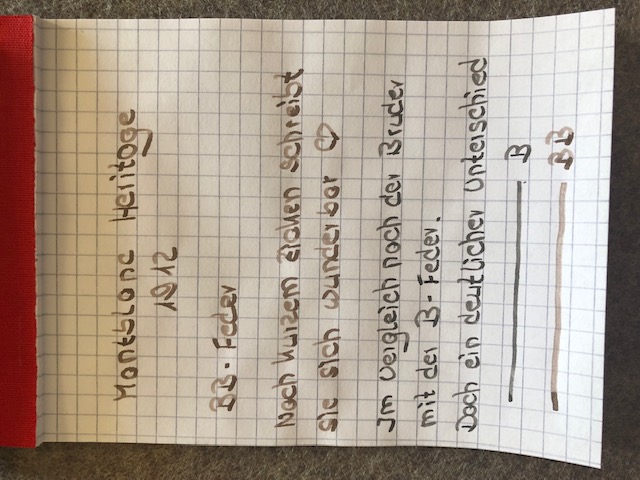 Montblanc Heritage
1912
BB-Feder
Nach kurzem zicken schreibt
sie sich wunderbar ♡
Im Vergleich noch der Bruder
mit der B-Feder.
Doch ein deutlicher Unterschied
B
BB